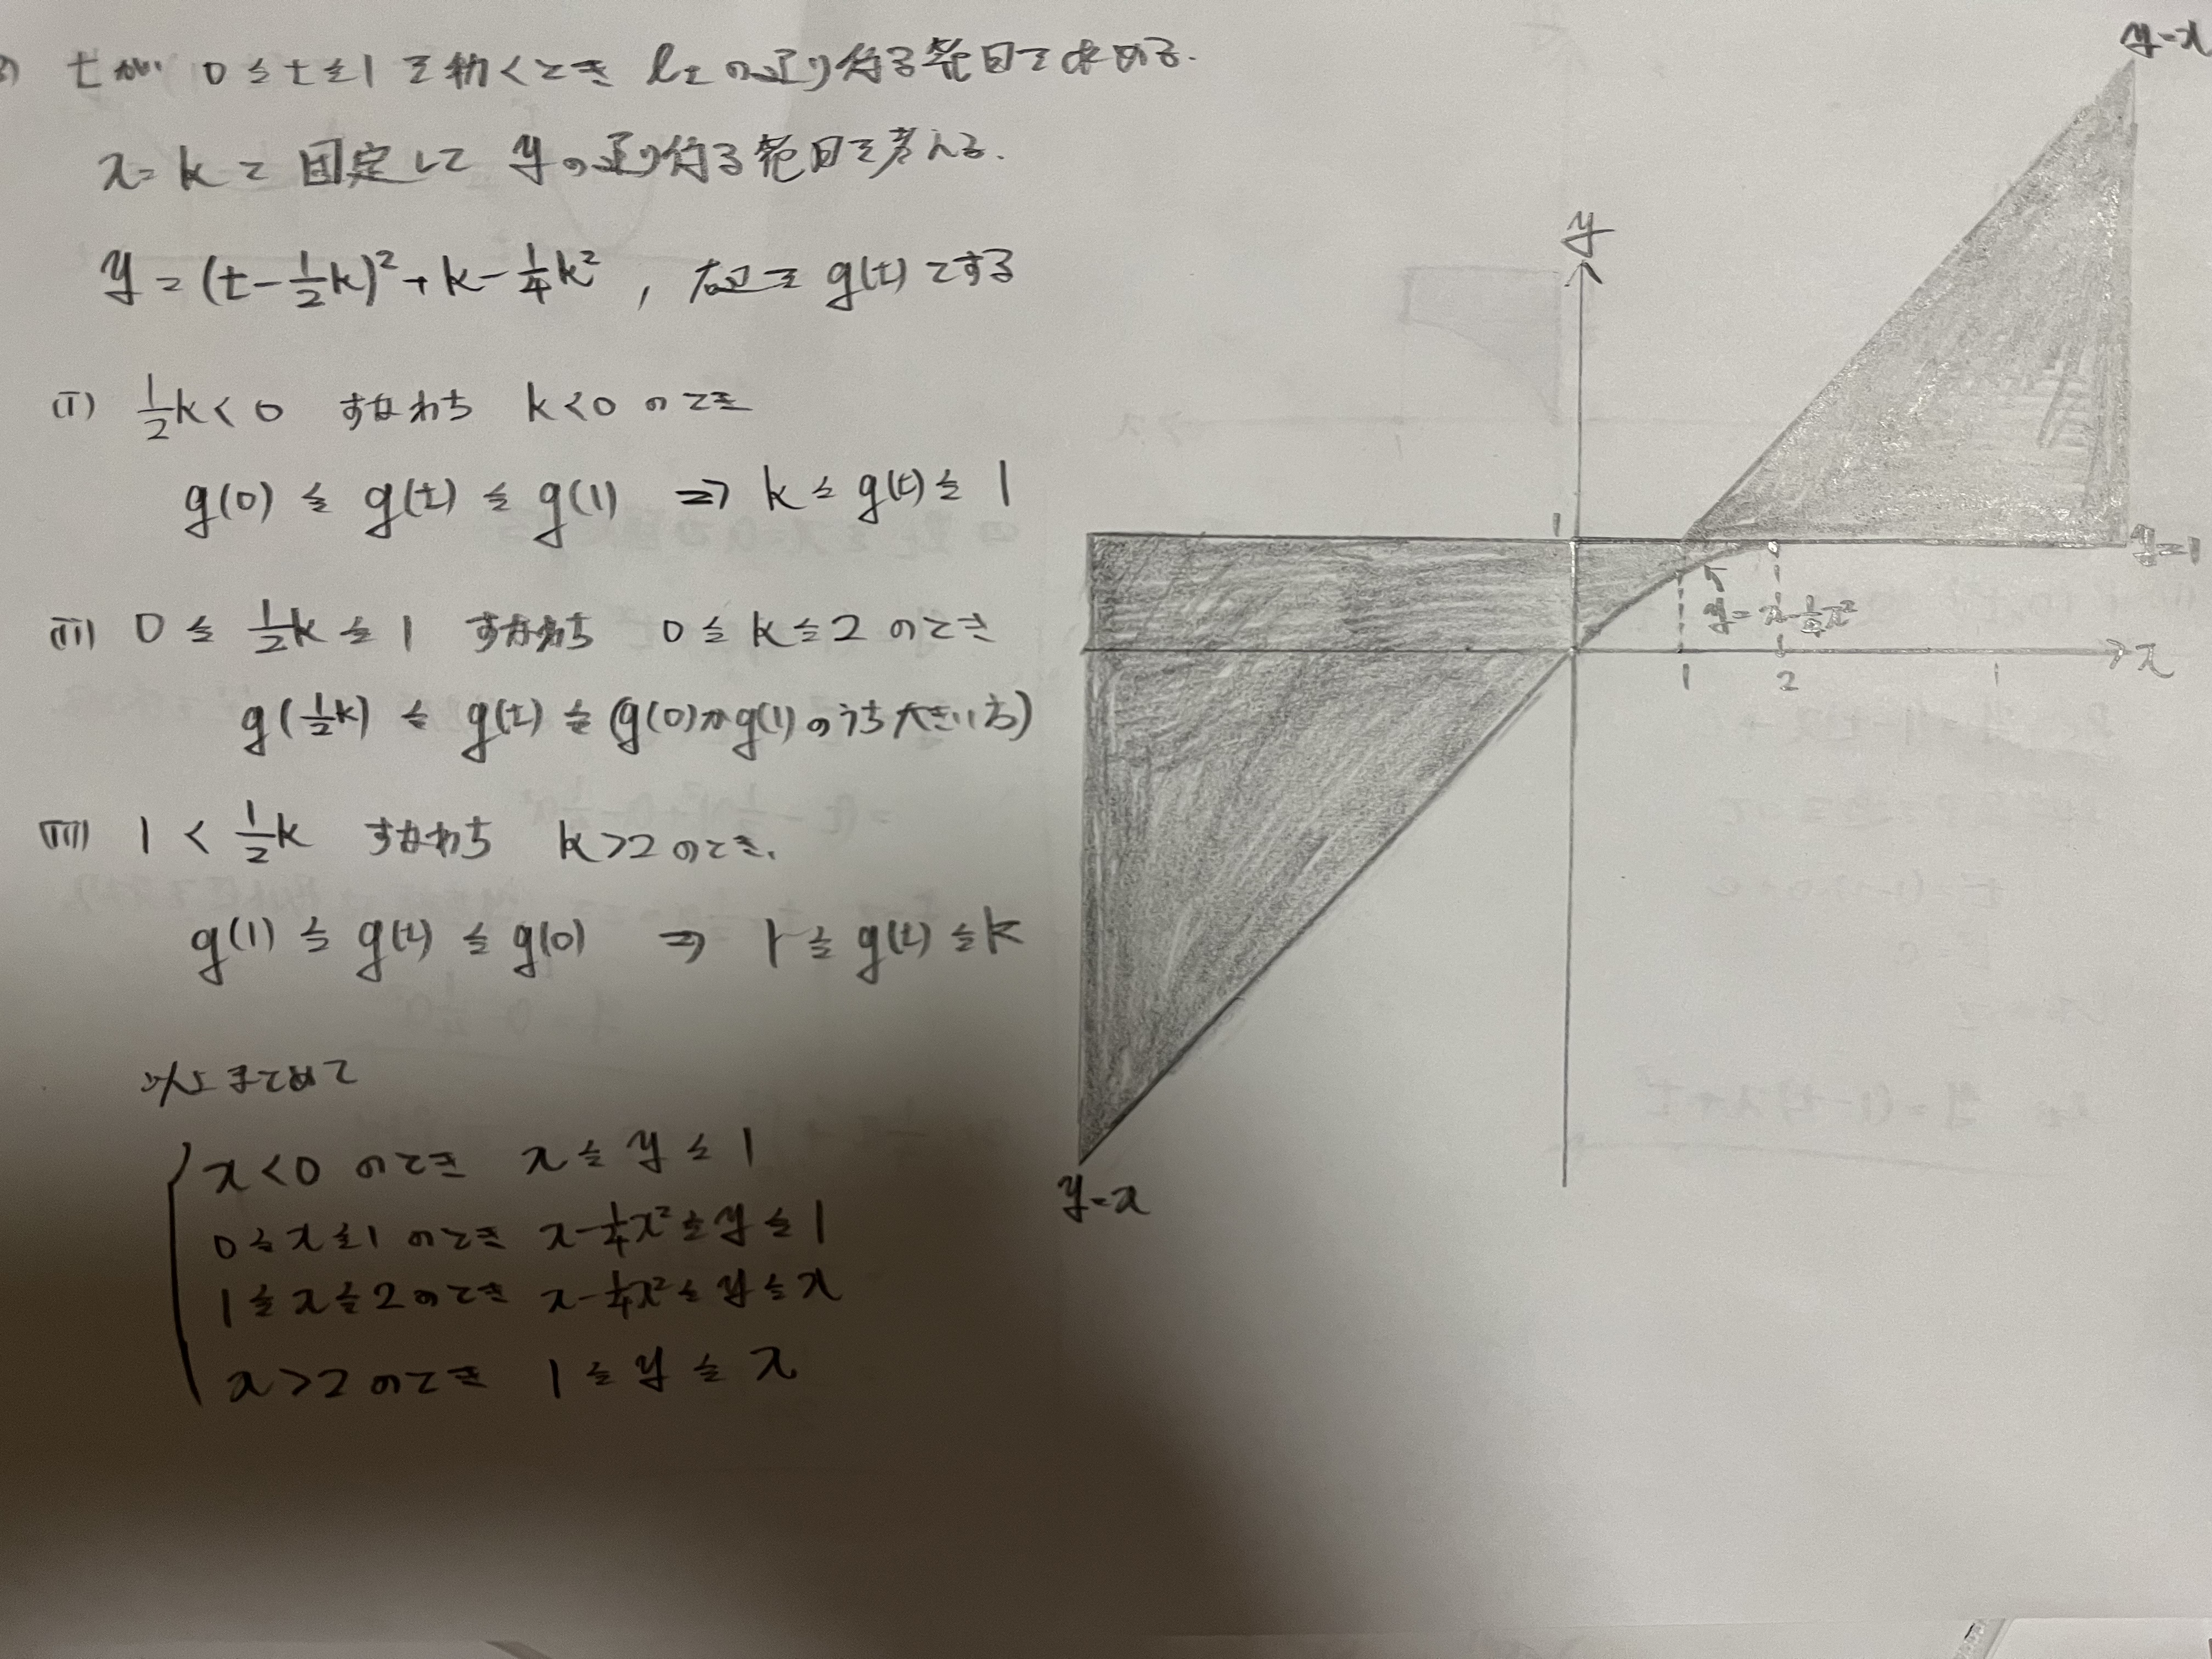 tが 0≦t≦1 を動くとき ltの通り得る範囲を求める.
x=kと固定してyの通り得る範囲を考える.
y=(t-1/2k)²+k-1/4k², 右辺をg(t)とする
(i) 1/2k<0 すなわち k<0のとき
g(0)≦g(t)≦g(1) ⇒ k≦g(t)≦1
(ii) 0≦1/2k≦1 すなわち 0≦k≦2のとき
g(1/2k)≦g(t)≦(g(0)かg(1)のうち大きい方)
(iii) 1<1/2k すなわち k>2のとき、
g(1)≦g(t)≦g(0) ⇒ 1≦g(t)≦k
以上まとめて
x<0のとき x≦y≦1
0≦x≦1のとき x-1/4x²≦y≦1
1≦x≦2のとき x-1/4x²≦y≦x
x>2のとき 1≦y≦x
y=x
y
1
y=1
y=x-1/4x²
x
1
2
y=x